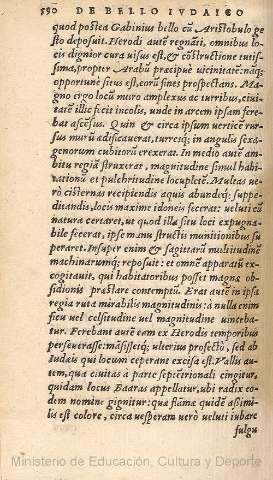 590 DE BELLO IVDAICO
quod postea Gabinius bello cũ Aristobulo ge
sto deposuit. Herodi autẽ regnãti, omnibus lo
cis dignior cura uisus est, & cõstructione tutis-
sima, propter Arabũ præcipuè uicinitatẽ: nãq;
opportunè situs est, eorũ fines prospectans. Ma-
gno ergo locũ muro amplexus ac turribus, ciui-
tatẽ illic fecit incolis, unde in arcem ipsam fere-
bat ascẽsus. Quin & circa ipsum uerticẽ rur-
sus murũ adificauerat, turresq; in angulis sexa-
genorum cubitorũ erexerat. In medio autẽ am-
bitu regiã struxerat, magnitudine simul habi-
tationũ et pulchritudine locupletẽ. Multas ue-
rò cisternas recipiendis aquis abundeq; suppe-
ditandis, locis maxime idoneis fecerat: ueluti cũ
natura certaret, ut quod illa situ loci expugna-
bile fecerat, ipse manu structis munitionibus su
peraret. Insuper enim & sagittarũ multitudinẽ
machinarumq; reposuit: et omnẽ apparatũ ex-
cogitauit, qui habitatoribus posset magnę ob-
sidionis præstare contemptũ. Erat autẽ in ipsa
regia ruta mirabilis magnitudinis: à nulla enim
ficu uel celsitudine uel magnitudine uinceba-
tur. Ferebant autẽ eam ex Herodis temporibus
perseuerasse: mãsissetq; ulterius profectò, sed ab
Iudæis qui locum ceperant excisa est. Vallis au-
tem, qua ciuitas à parte septẽtrionali cingitur,
quidam locus Baaras appellatur, ubi radix eo-
dem nomine gignitur: quæ flamæ quidẽ assimi-
lis est colore, circa uesperam uerò ueluti iubare
fulgu
Ministerio de Educación, Cultura y Deporte